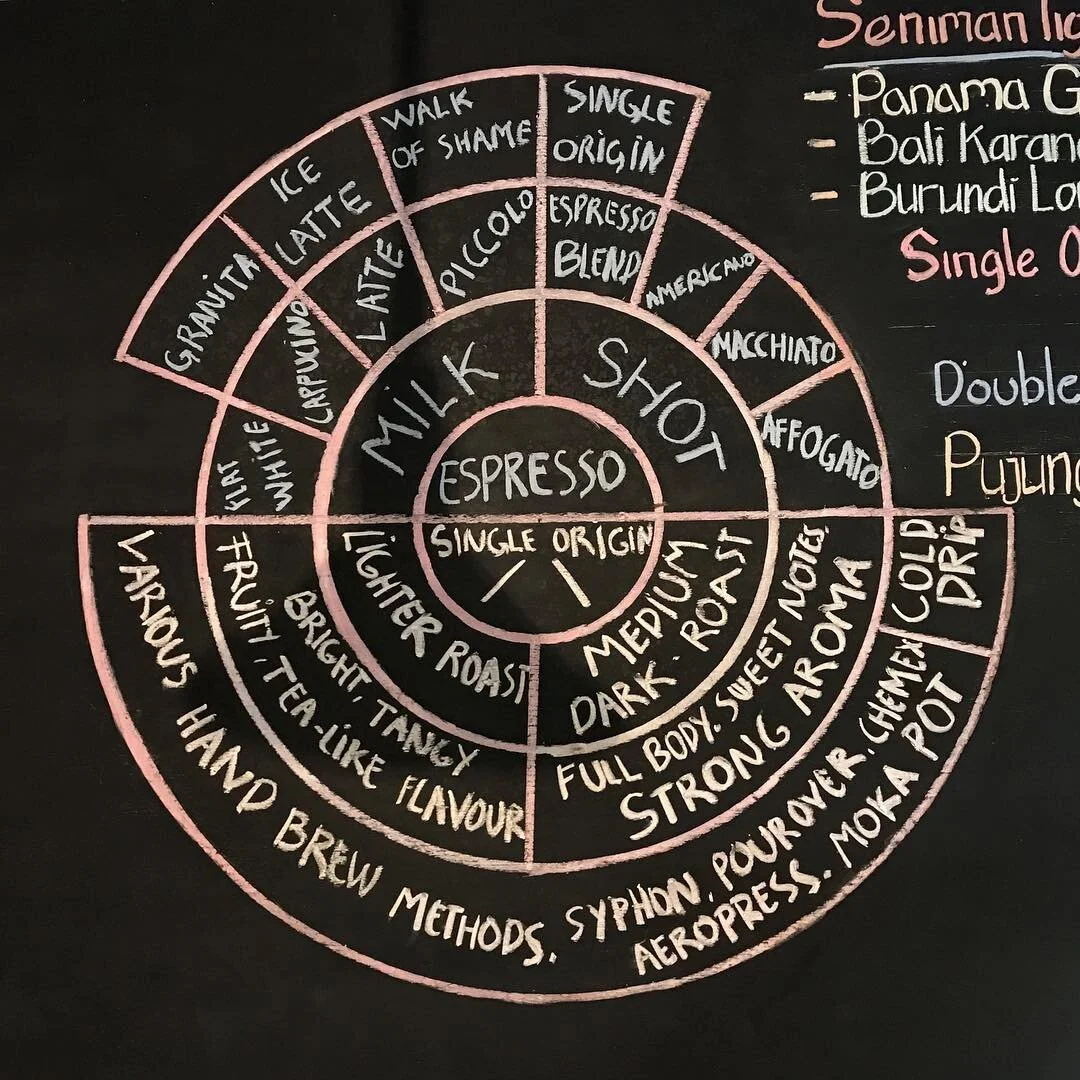 WALK
OF SHAME
SINGLE
ORIGIN
ICE
LATTE
GRANITA
PICCOLO
ESPRESSO
BLEND
LATTE
CAPPUCINO
FLAT
WHITE
AMERICANO
MACCHIATO
AFFOGATO
MILK
SHOT
ESPRESSO
SINGLE ORIGIN
LIGHTER ROAST
MEDIUM
DARK - ROAST
BRIGHT, TANGY
FRUITY, TEA-LIKE FLAVOUR
FULL BODY. SWEET NOTES.
STRONG AROMA
COLD
DRIP
VARIOUS HAND BREW METHODS. SYPHON, POUROVER, CHEMEX
AEROPRESS. MOKA POT
Seniman
- Panama G
- Bali Karan
- Burundi
Single O
Double
Pujung